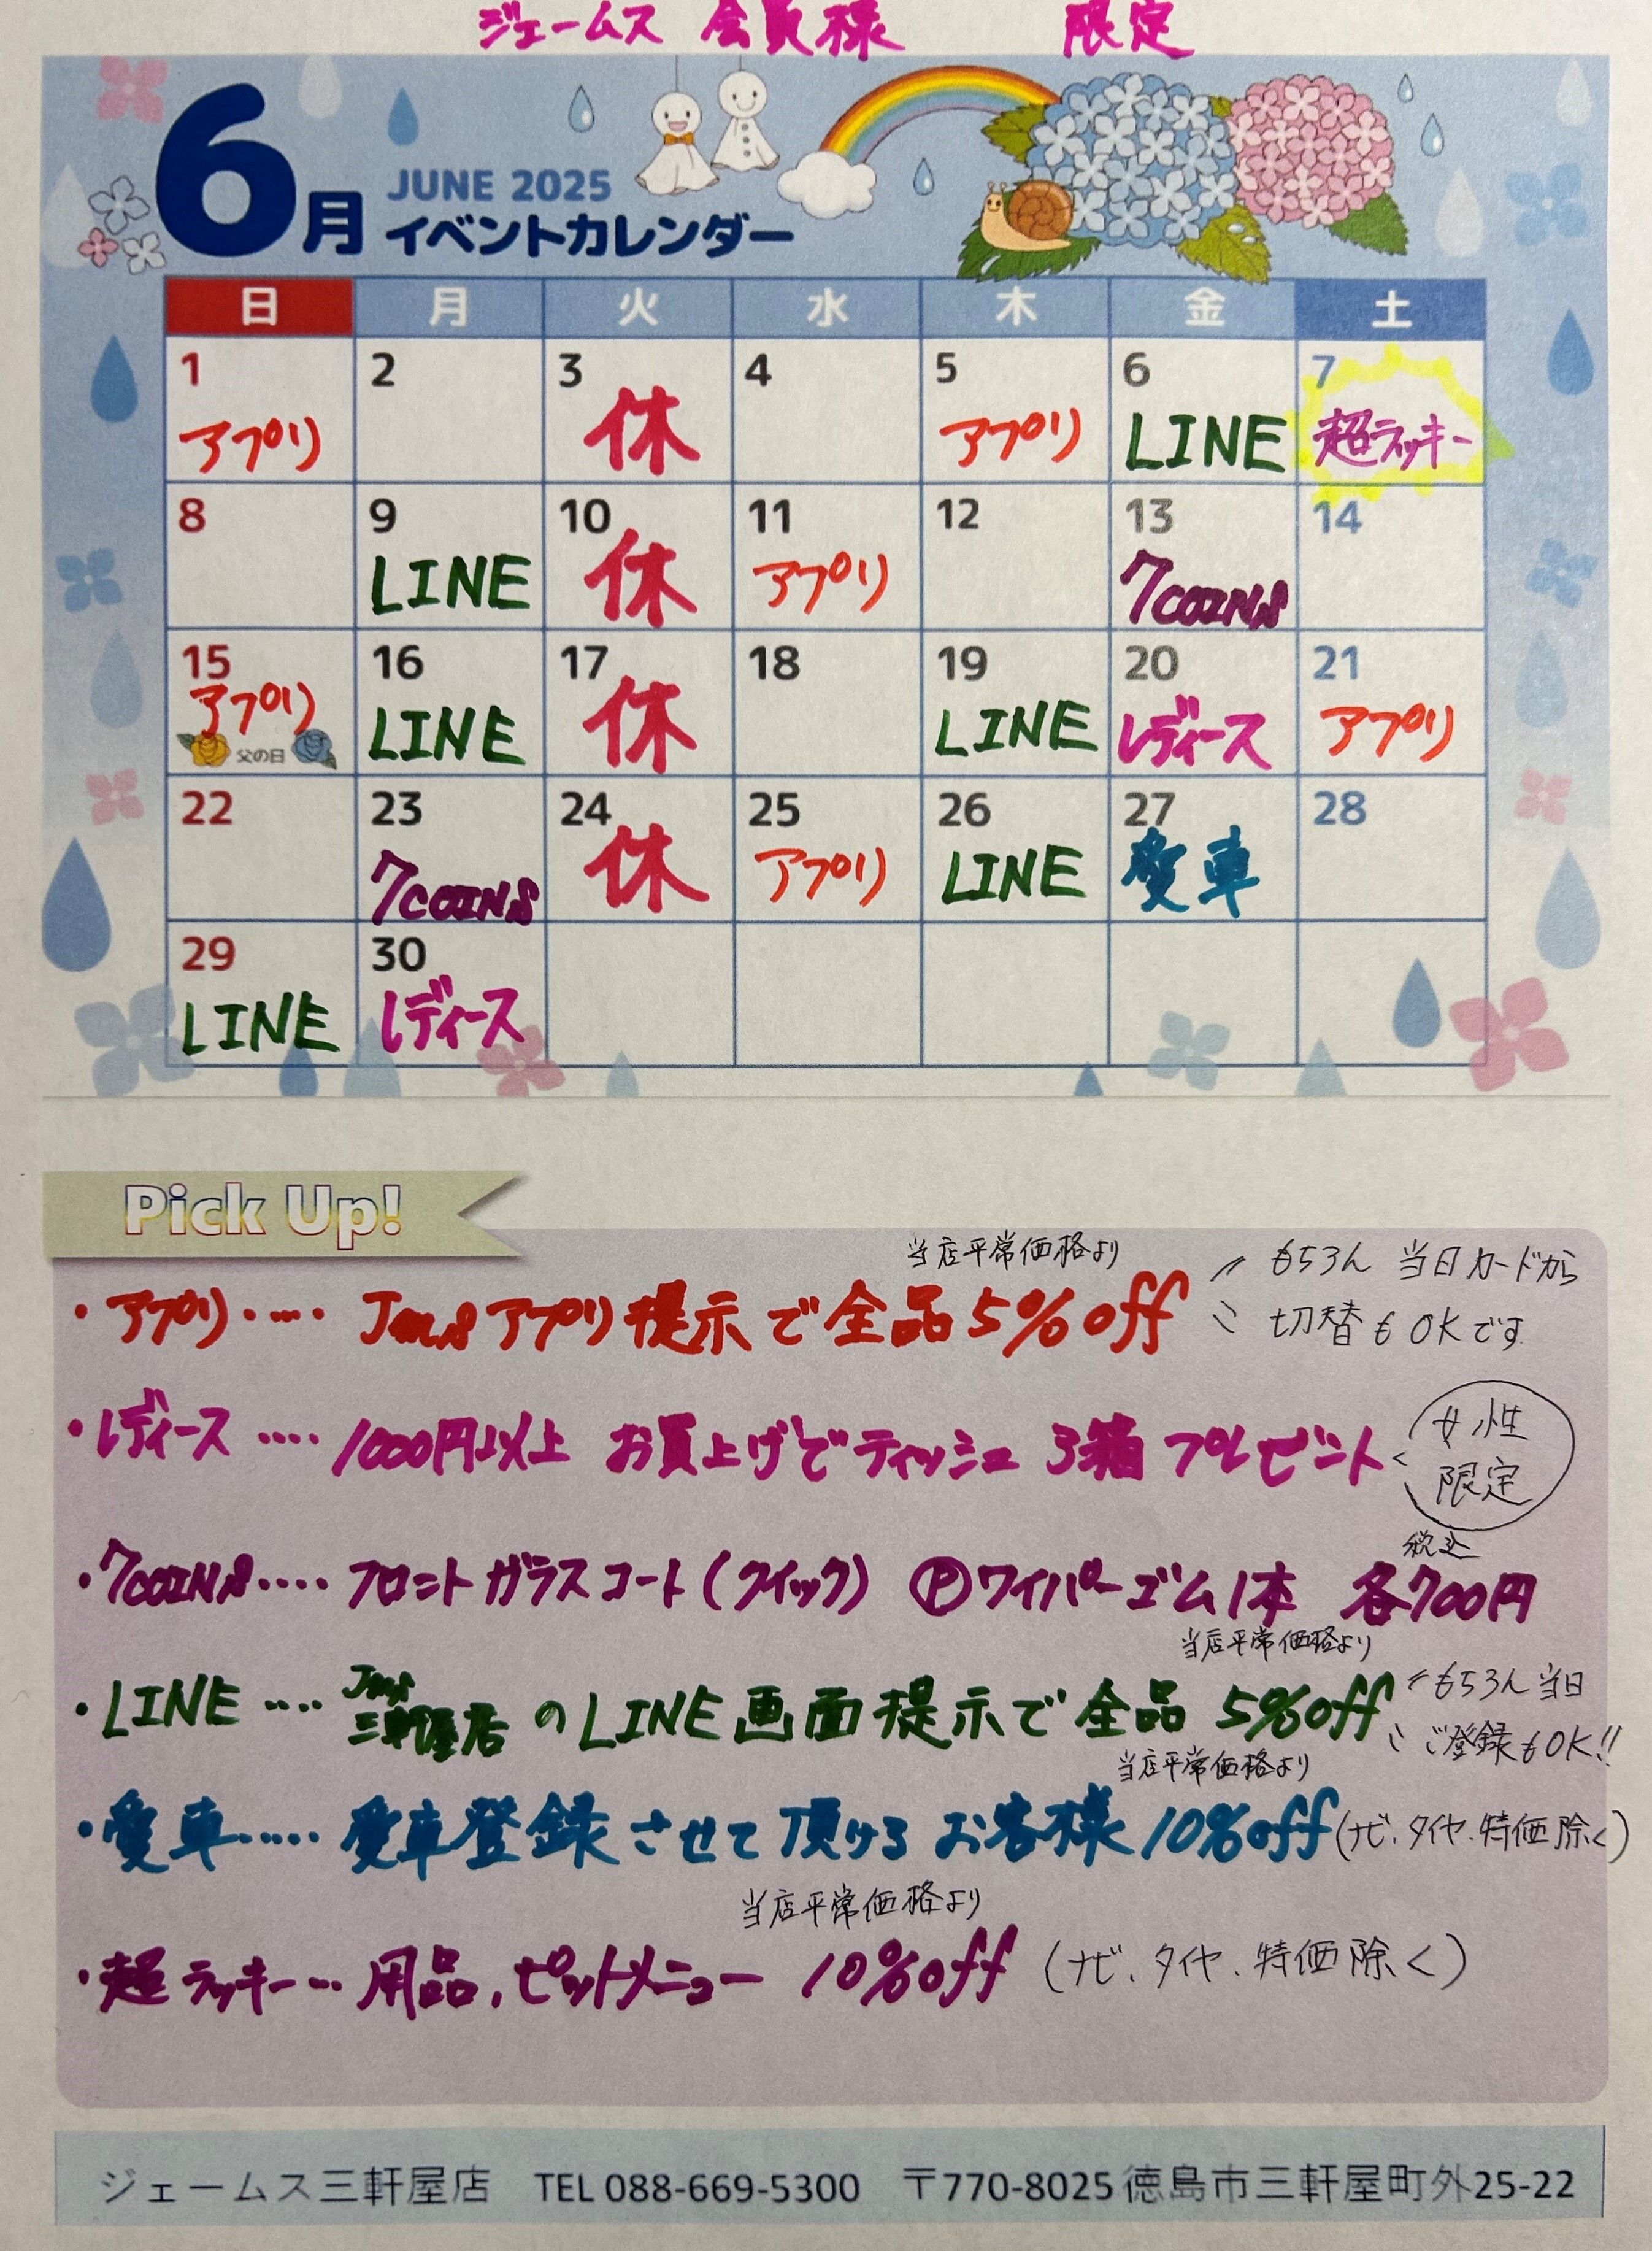 ジェームス 会員様 限定
6月 JUNE 2025
イベントカレンダー
日 月 火 水 木 金 土
1 2 3 4 5 6 7
アプリ 休 アプリ LINE 超ラッキー
8 9 10 11 12 13 14
LINE 休 アプリ 7COINS
15 16 17 18 19 20 21
アプリ LINE 休 LINE レディース アプリ
父の日
22 23 24 25 26 27 28
7COINS 休 アプリ LINE 愛車
29 30
LINE レディース
Pick Up!
当店平常価格より
・アプリ‥‥ Jmsアプリ提示で全品5%off もちろん 当日カードから
切替もOKです
・レディース‥‥ 1000円以上 お買上げでティッシュ 3箱 プレゼント 女性
限定
税込
・7COINS‥‥ フロントガラスコート(クイック) Ⓟワイパーゴム1本 各700円
当店平常価格より
・LINE‥‥ Jms三軒屋店のLINE画面提示で全品 5%off もちろん当日
ご登録もOK!!
当店平常価格より
・愛車‥‥ 愛車登録させて頂けるお客様10%off(ナビ、タイヤ、特価除く)
当店平常価格より
・超ラッキー‥ 用品、ピットメニュー 10%off (ナビ、タイヤ、特価除く)
ジェームス三軒屋店 TEL 088-669-5300 〒770-8025 徳島市三軒屋町外25-22